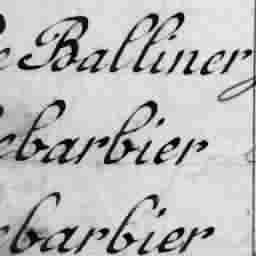 e Balliner
ebarbier
ebarbier